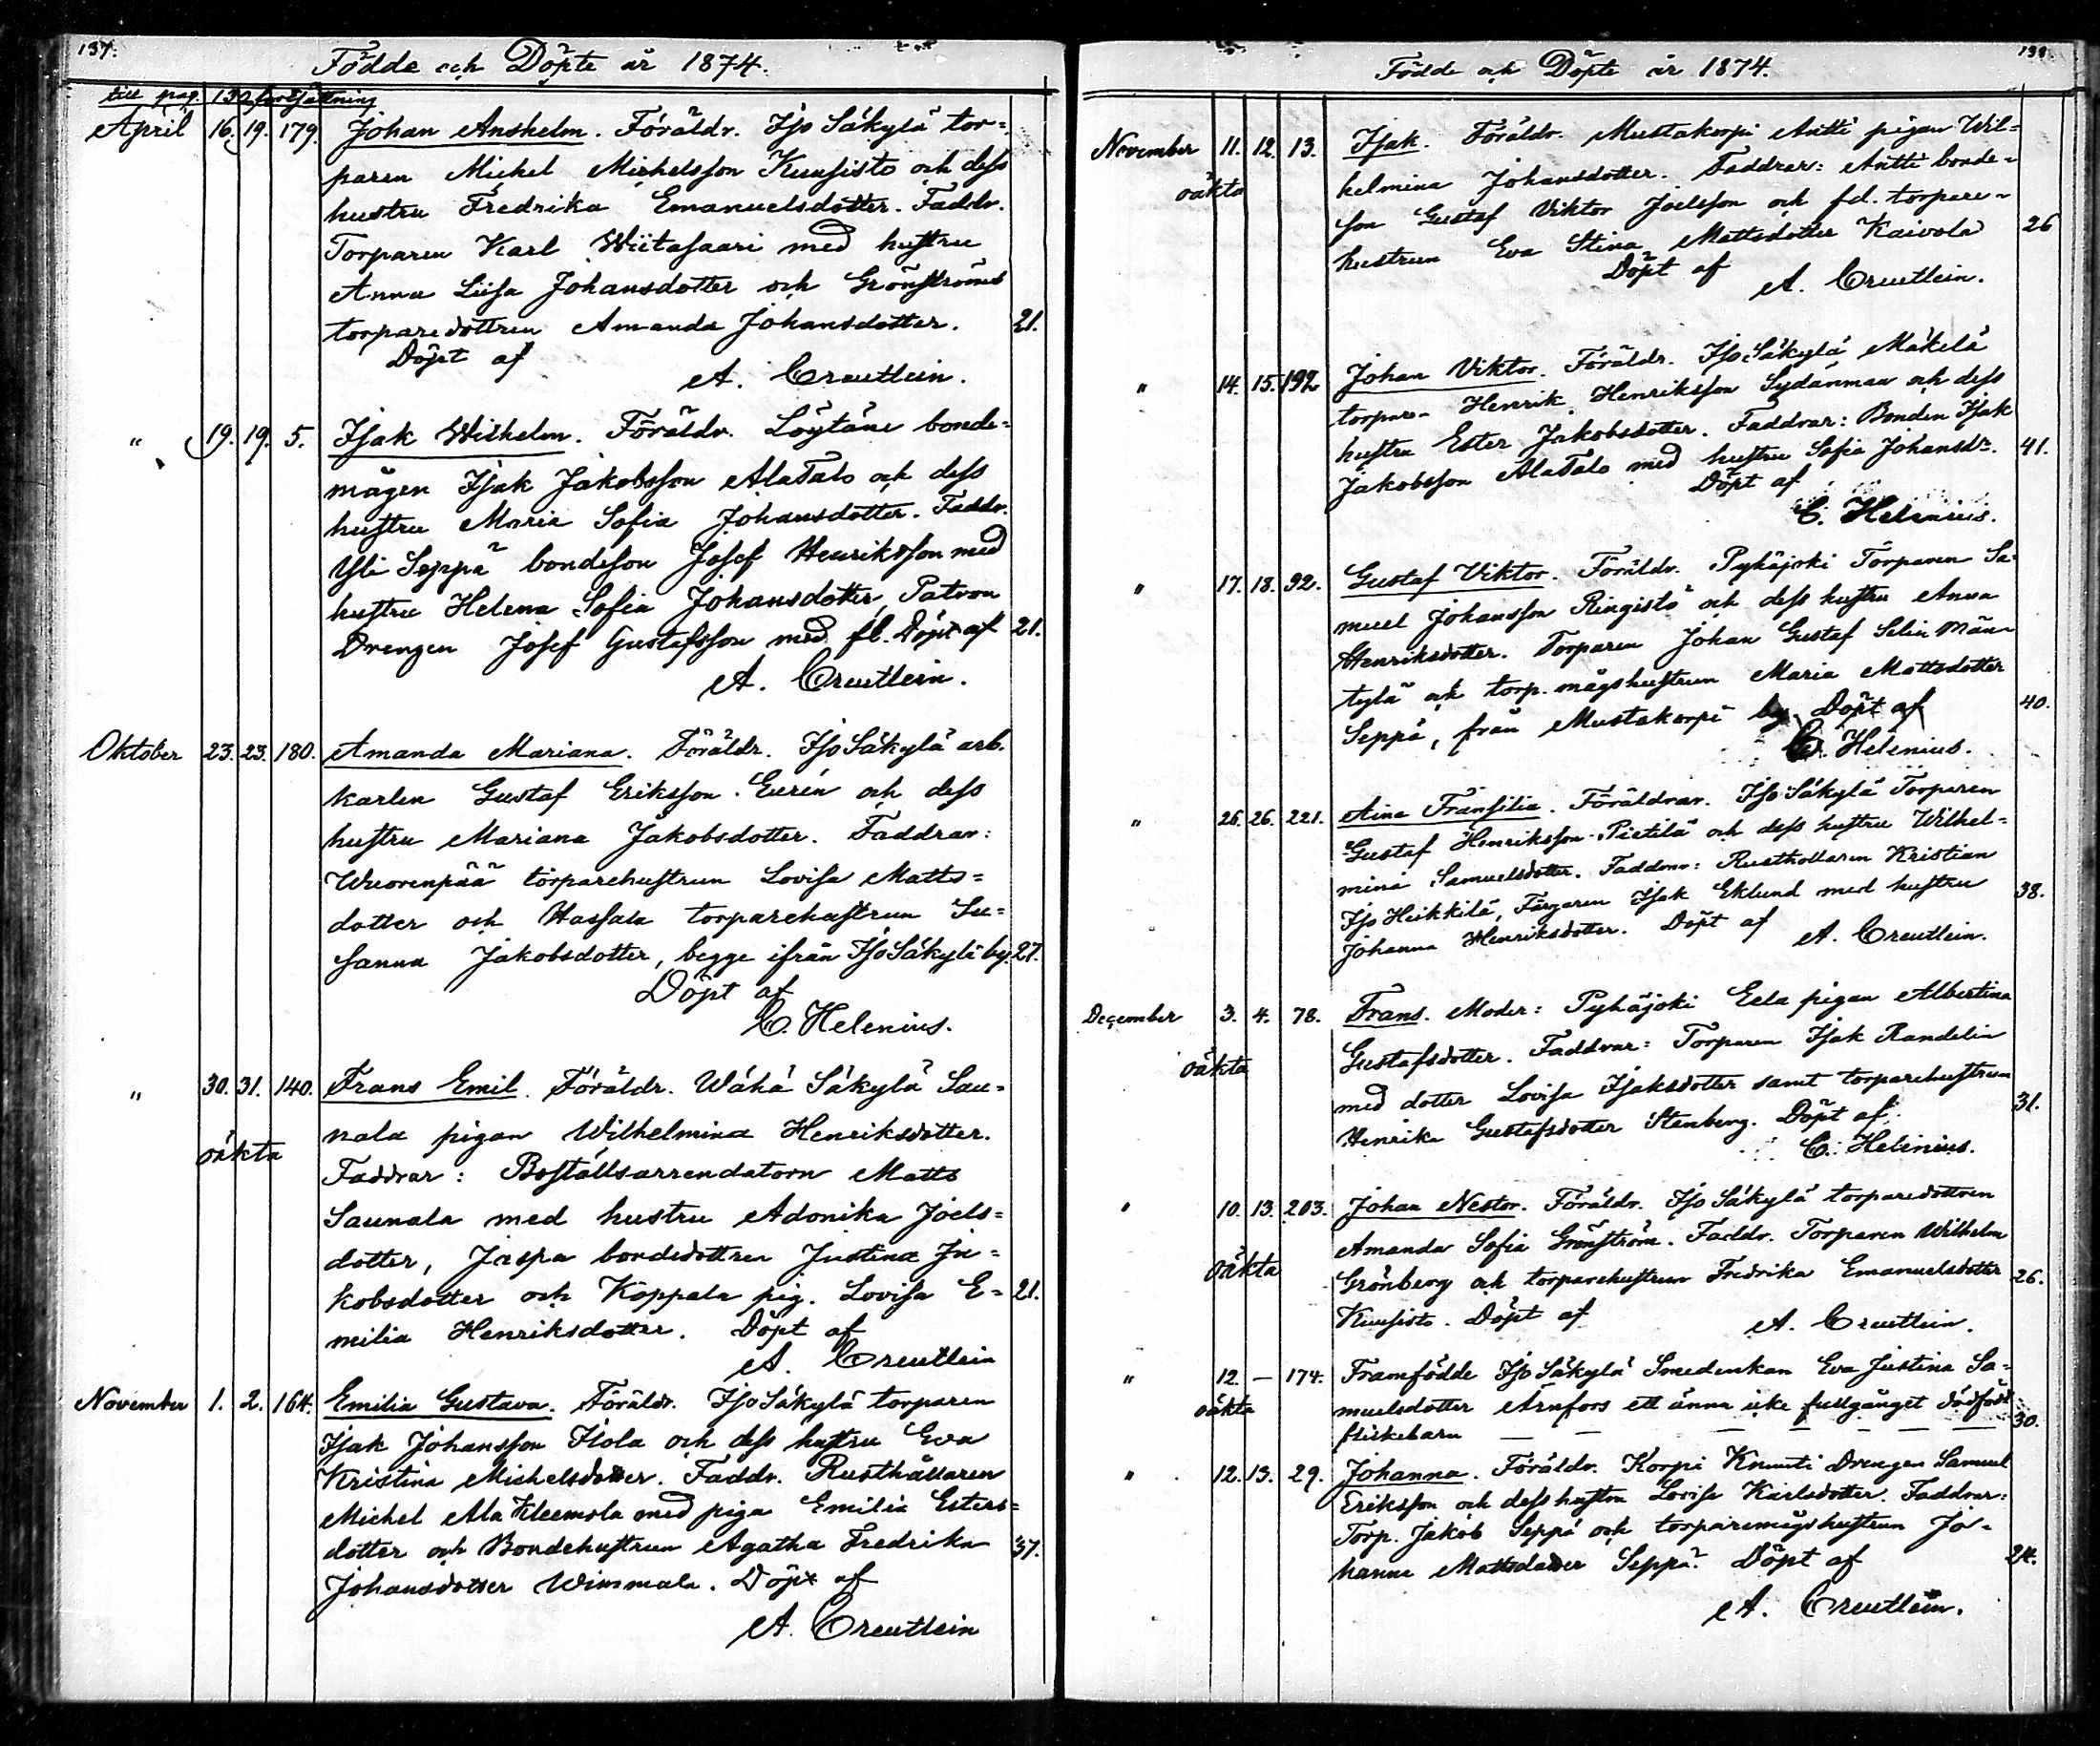 137.
Födde och Döpte år 1874.
till pag. 130 fortsättning
April 16. 19. 179. Johan Anshelm. Föräldr. Iso Säkylä tor=
paren Michel Michelsson Kuusisto och dess
hustru Fredrika Emanuelsdotter. Faddr.
Torparen Karl Wiitasaari med hustru
Anna Liisa Johansdotter och Grönströms
torparedottren Amanda Johansdotter. 21.
Döpt af
A. Creutlein.
" 19. 19. 5. Isak Wilhelm. Föräldr. Löytäne bonde=
mågen Isak Jakobsson AlaTalo och dess
hustru Maria Sofia Johansdotter. Faddr.
Yli Seppä bondeson Josef Henriksson med
hustru Helena Sofia Johansdotter, Patron
Drengen Josef Gustafsson med fl. Döpt af 21.
A. Creutlein.
Oktober 23. 23. 180. Amanda Mariana. Föräldr. Iso Säkylä arb.
karlen Gustaf Eriksson Eurén och dess
hustru Mariana Jakobsdotter. Faddrar:
Wuorenpää torparehustrun Lovisa Matts=
dotter och Hassala torparehustrun Su=
sanna Jakobsdotter, begge ifrån Iso Säkylä by. 27.
Döpt af
C. Helenius.
" 30. 31. 140. Frans Emil. Föräldr. Wähä Säkylä Sau=
oäkta nala pigan Wilhelmina Henriksdotter.
Faddrar: Boställsarrendatorn Matts
Saunala med hustru Adonika Joels=
dotter, Jaspa bondedottren Justina Ja=
kobsdotter och Koppala pig. Lovisa E= 21.
milia Henriksdotter. Döpt af
A. Creutlein
November 1. 2. 164. Emilia Gustava. Föräldr. Iso Säkylä torparen
Isak Johansson Ilola och dess hustru Eva
Kristina Michelsdotter. Faddr. Rusthållaren
Michel Ala Kleemola med piga Emilia Esters=
dotter och Bondehustrun Agatha Fredrika 37.
Johansdotter Wimmala. Döpt af
A. Creutlein
138.
Födde och Döpte år 1874.
November 11. 12. 13. Isak. Föräldr. Mustakorpi Antti pigan Wil=
oäkta helmina Johansdotter. Faddrar: Antti bonde=
son Gustaf Viktor Joelsson och fd. torpare=
hustrun Eva Stina Mattsdotter Kaivola 26
Döpt af
A. Creutlein.
" 14. 15. 192 Johan Viktor. Föräldr. Iso Säkylä Mäkelä
torpare Henrik Henriksson Sydänmaa och dess
hustru Ester Jakobsdotter. Faddrar: Bonden Isak
Jakobsson AlaTalo med hustru Sofia Johansdr. 41.
Döpt af
C. Helenius.
" 17. 18. 92. Gustaf Viktor. Föräldr. Pyhäjoki Torparen Sa=
muel Johansson Ringisto och dess hustru Anna
Henriksdotter. Torparen Johan Gustaf Selin Män=
tylä och torp. mågshustrun Maria Mattsdotter
Seppä, från Mustakorpi by. Döpt af 40.
C. Helenius.
" 26. 26. 221. Aina Fransilia. Föräldrar. Iso Säkylä Torparen
Gustaf Henriksson Pietilä och dess hustru Wilhel=
mina Samuelsdotter. Faddrar: Rusthollaren Kristian
Iso Heikkilä, Färgaren Isak Eklund med hustru 38.
Johanna Henriksdotter. Döpt af
A. Creutlein.
December 3. 4. 78. Frans. Moder: Pyhäjoki Eela pigan Albertina
oäkta Gustafsdotter. Faddrar: Torparen Isak Randelin
med dotter Lovisa Isaksdotter samt torparehustrun
Henrika Gustafsdotter Stenberg. Döpt af 31.
C. Helenius.
" 10. 13. 203. Johan Nestor. Föräldr. Iso Säkylä torparedottren
oäkta Amanda Sofia Grönström. Faddr. Torparen Wilhelm
Grönberg och torparehustrun Fredrika Emanuelsdotter 26.
Kuusisto. Döpt af
A. Creutlein.
" 12. — 174. Framfödde Iso Säkylä Smedenkan Eva Justina Sa=
oäkta muelsdotter Arnfors ett ännu icke fullgånget dödfödt
flickebarn — — — — — — — 30.
" 12. 13. 29. Johanna. Föräldr. Korpi Knuuti Drengen Samuel
Eriksson och dess hustru Lovisa Karlsdotter. Faddrar:
Torp. Jakob Seppä och torparemågshustrun Jo=
hanna Mattsdotter Seppä. Döpt af 24.
A. Creutlein.